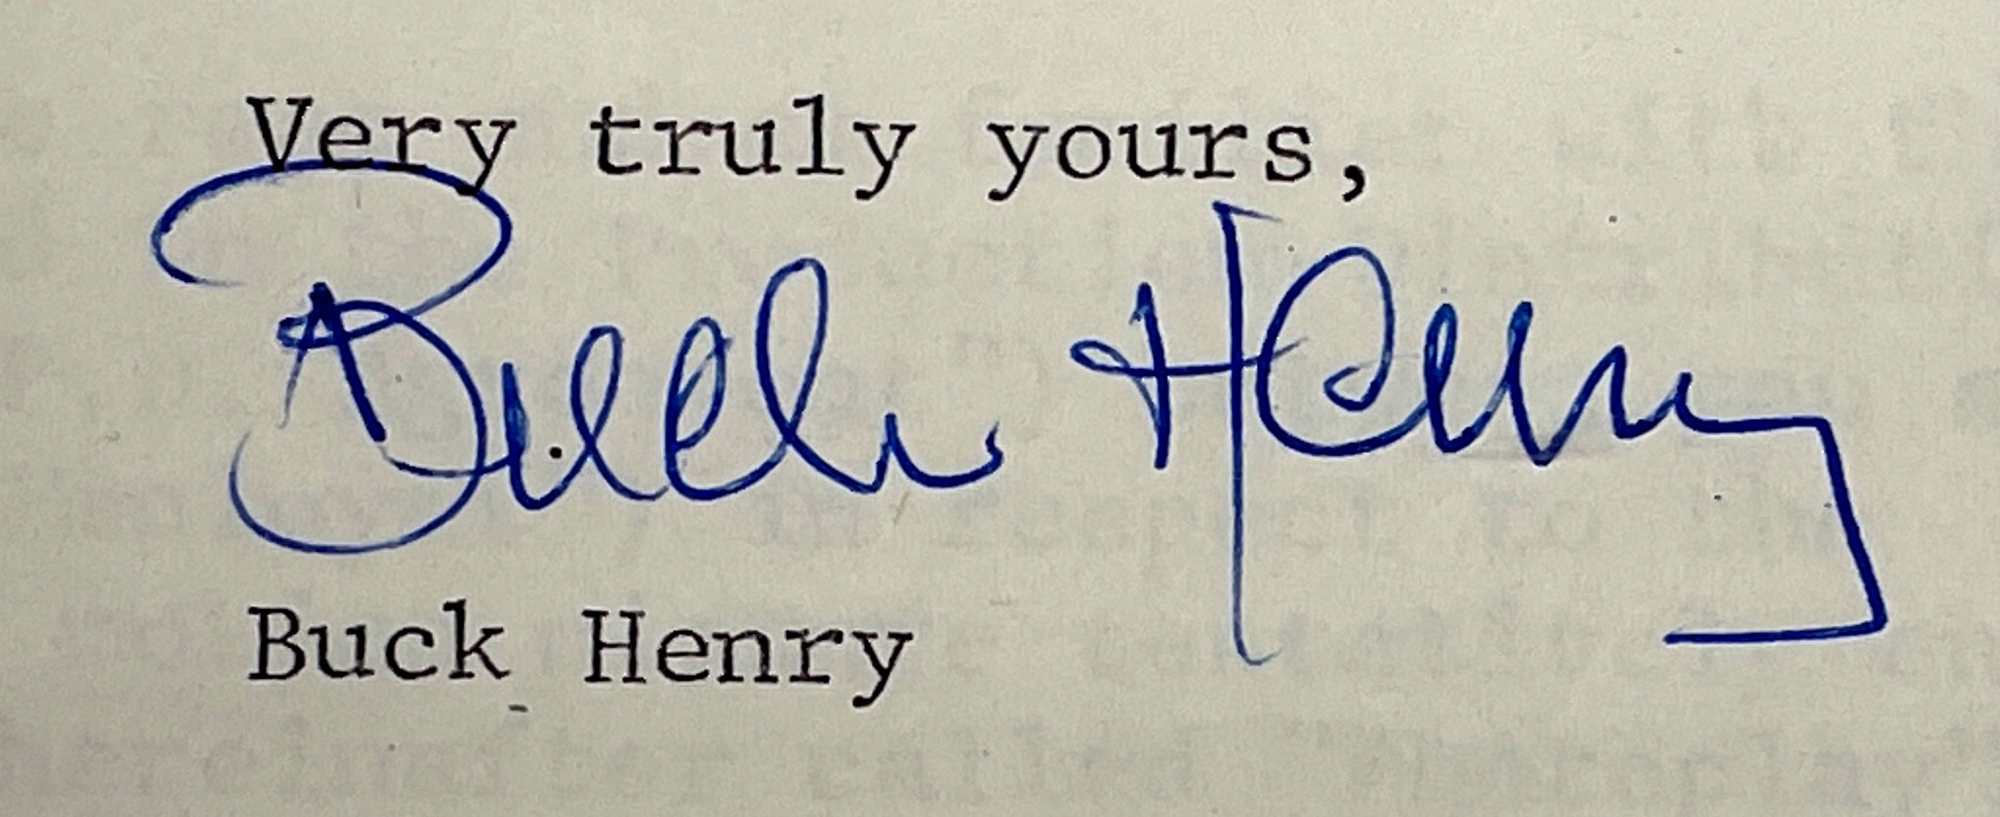 Very truly yours,
Buck Henry
Buck Henry